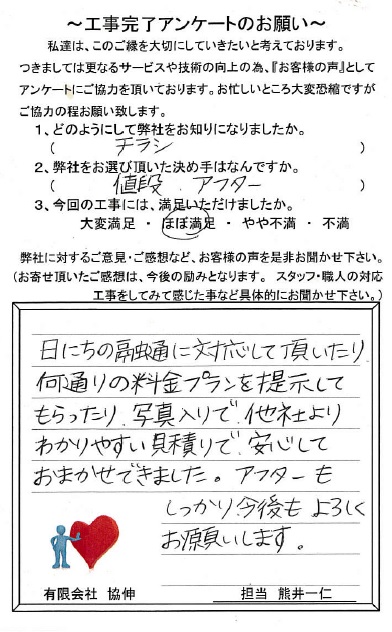 ～工事完了アンケートのお願い～
私達は、このご縁を大切にしていきたいと考えております。
つきましては更なるサービスや技術の向上の為、『お客様の声』として
アンケートにご協力を頂いております。お忙しいところ大変恐縮ですが
ご協力の程お願い致します。
1、どのようにして弊社をお知りになりましたか。
( チラシ )
2、弊社をお選び頂いた決め手はなんですか。
( 値段、アフター )
3、今回の工事には、満足いただけましたか。
大変満足 ・ ほぼ満足 ・ やや不満 ・ 不満
弊社に対するご意見・ご感想など、お客様の声を是非お聞かせ下さい。
(お寄せ頂いたご感想は、今後の励みとなります。 スタッフ・職人の対応
工事をしてみて感じた事など具体的にお聞かせ下さい。)
日にちの融通に対応して頂いたり
何通りの料金プランを提示して
もらったり、写真入りで、他社より
わかりやすい見積りで、安心して
おまかせできました。アフターも
しっかり、今後も よろしく
お願いします。
有限会社 協伸
担当 熊井一仁